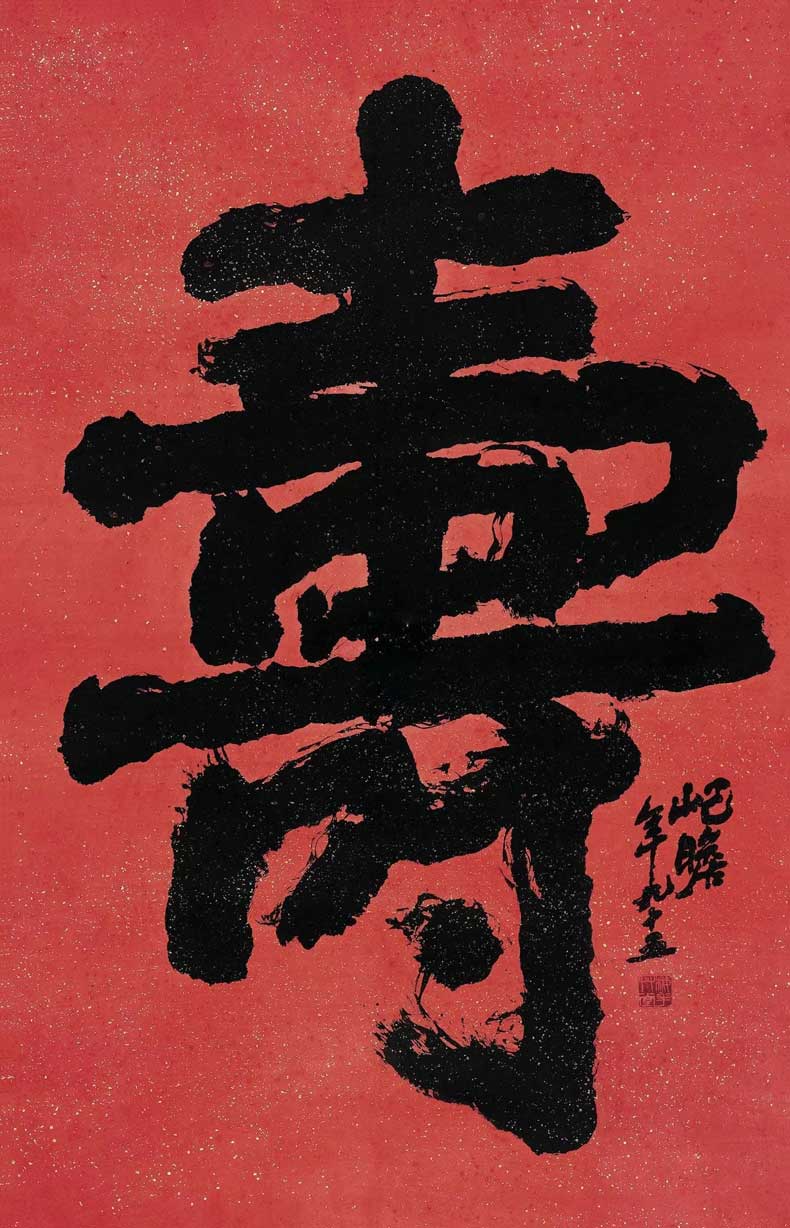 壽
屺瞻
年九十五